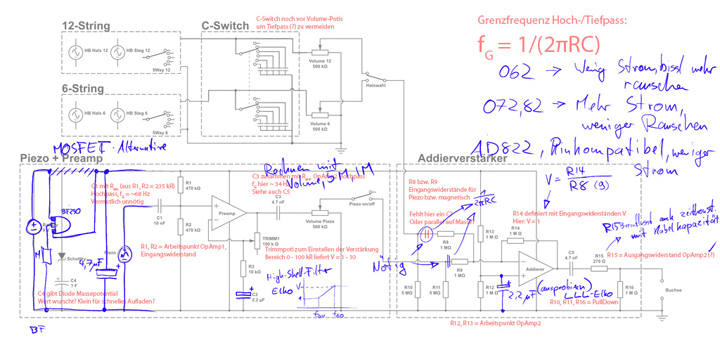 12-String
C-Switch
C-Switch noch vor Volume-Potis
um Tiefpass (?) zu vermeiden
Grenzfrequenz Hoch-/Tiefpass:
f_G = 1/(2πRC)
HB Hals 12
HB Steg 12
5Way 12
Volume 12
500 kΩ
Halswahl
062 → Wenig Strom, bissl mehr
rauschen
072,82 → Mehr Strom,
weniger Rauschen
AD822, Pinkompatibel, weniger
Strom
6-String
HB Hals 6
HB Steg 6
5Way 6
Volume 6
500 kΩ
MOSFET-Alternative
V = R14 / R8 (9)
Piezo + Preamp
Addierverstärker
Rechnen mit
Volume, 5M, 1M
C1 mit
(aus R1, R2 = 235 kΩ)
Hochpass, f_G = ~68 Hz
Vermutlich unnötig
C3 zusammen
OpAmp2 Hochpass
f_G hier ~ 34 Hz
Siehe auch C3
R8 bzw. R9
Eingangswiderstände für
Piezo bzw. magnetisch
2πRC
Fehlt hier ein C?
Oder parallel auf Masse?
R14 definiert mit Eingangswiderständen V
Hier: V = 1
R15 Einfluss auf Zeitkonst.
mit Kabelkapazität
BF250
M
4,7µF
Piezo
C1
10 nF
R1
470 kΩ
R2
470 kΩ
Preamp
C3
4.7 nF
Volume Piezo
500 kΩ
Piezo on/off
R1, R2 = Arbeitspunkt OpAmp1,
Eingangswiderstand
TRIMM1
100 kΩ
Trimmpoti zum Einstellen der Verstärkung
Bereich 0 - 100 kΩ liefert V = 3 - 10
R3
10 kΩ
C2
2.2 µF
C4
? F
C4 gibt Diode Massepotential
Wert wurscht! Klein für schnelles Aufladen!
High-Shelf-Filter
Echo
Nötig
R8
1 MΩ
R9
1 MΩ
R10
5 MΩ
R11
5 MΩ
R12
1 MΩ
R13
1 MΩ
R14
1 MΩ
Addierer
C5
4.7 nF
R15
270 Ω
R15 = Ausgangswiderstand OpAmp2 (?)
R16
1 MΩ
Buchse
2,2 µF (ausprobieren)
LLL-Echo
R10, R11, R16 = PullDown
R12, R13 = Arbeitspunkt OpAmp2
BF